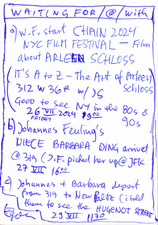 WAITING FOR/@/with
a) W.F. start CHAIN 2024
NYC FILM FESTIVAL - Film
about ARLEEN SCHLOSS
(IT'S A to Z - The Art of Arleen
Schloss)
312 W 36th w/ JG
Good to see NY in the 80s &
90s
26 VII 2024 1900
FRIDAY
b) Johannes Feuling's
NIECE BARBARA DING arrived
@ 319 (J.F. picked her up @ JFK
27 VII 1600
c) Johannes + Barbara depart
from 319 to New Paltz (I told
them to see the HUGENOT STREET
29 VII 1130